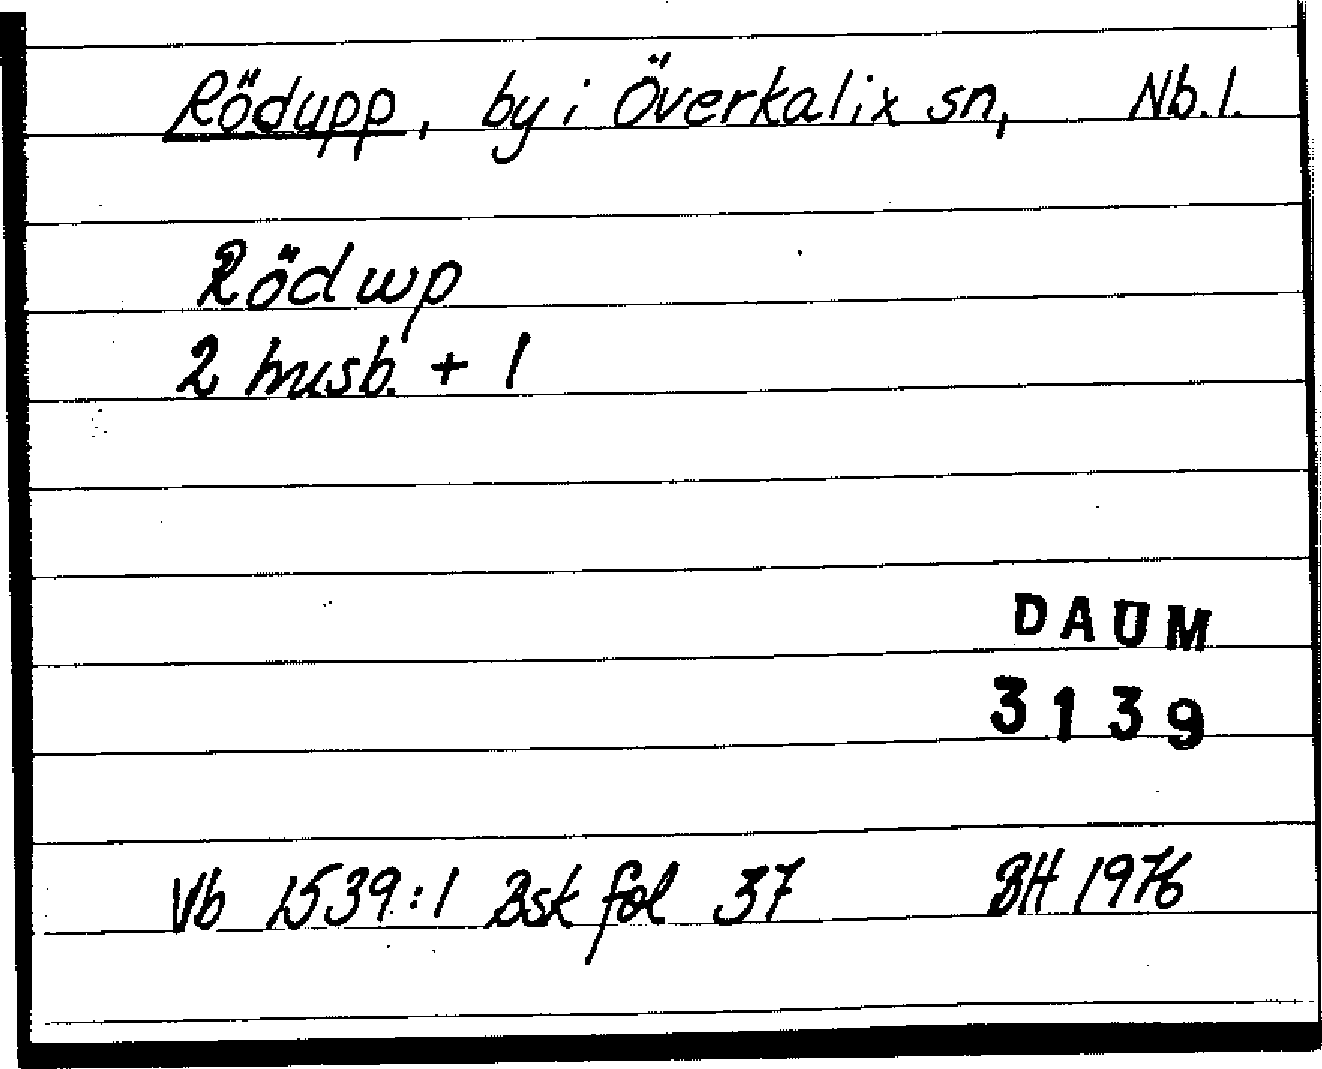 Rödupp, by i Överkalix sn, Nb. l.
Rödwp
2 husb. + 1
DAUM
3139
Vb 1539:1 Bsk fol 37 BH 1976